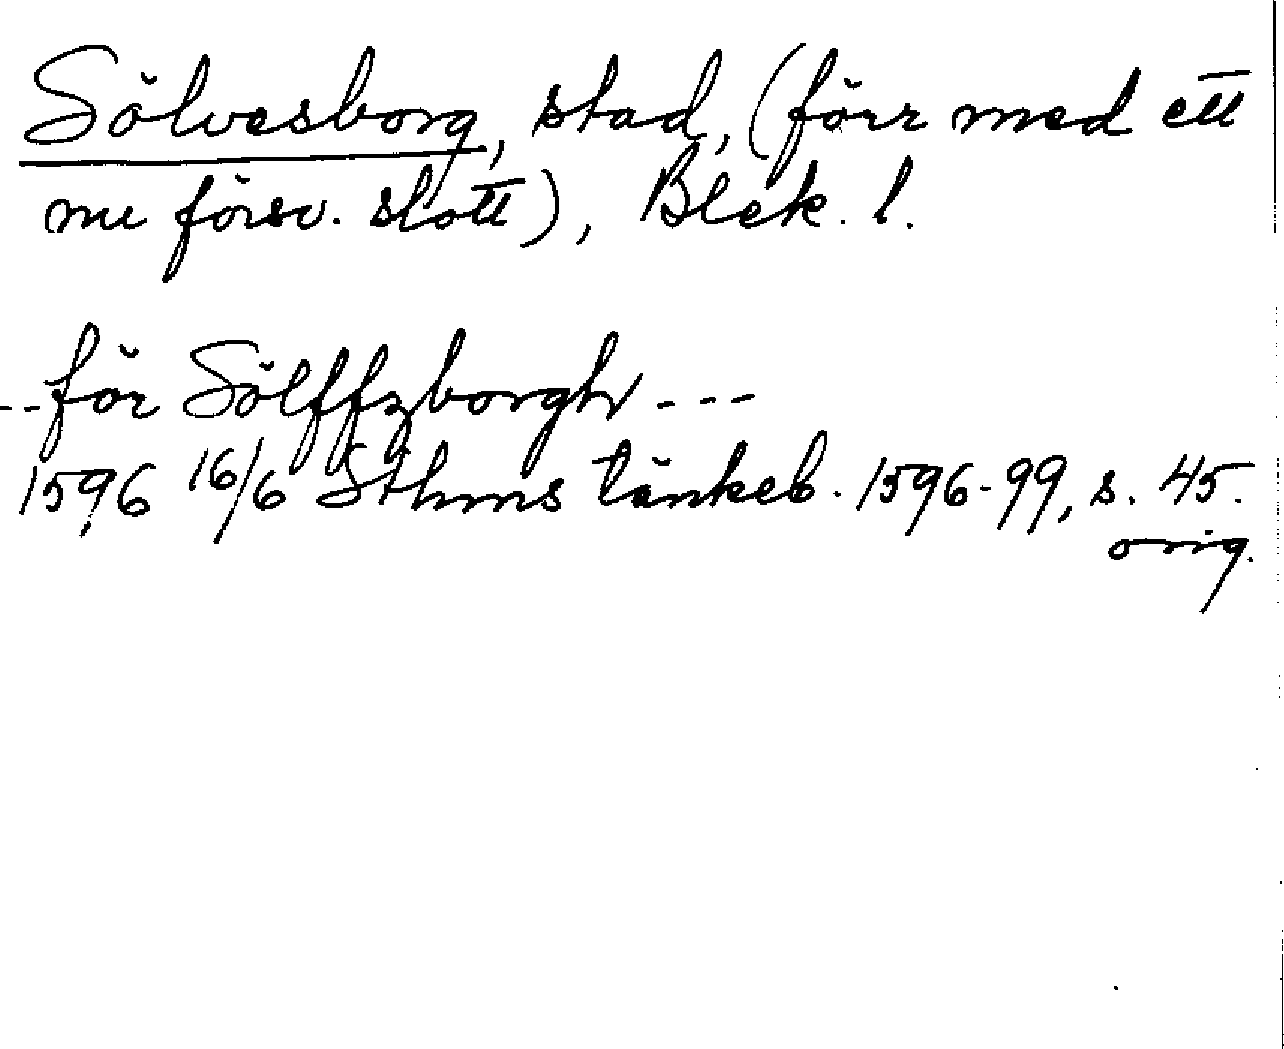 Sölvesborg, stad, (förr med ett
nu försv. slott), Blek. l.
--för Sölffzborgh ---
1596 16/6 Sthms tänkeb. 1596-99, s. 45.
orig.